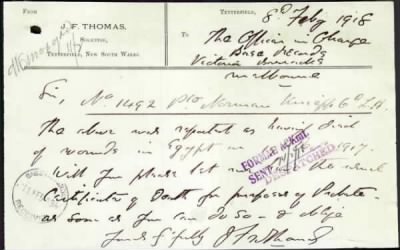 FROM
J. F. THOMAS,
SOLICITOR,
TENTERFIELD, NEW SOUTH WALES.
TENTERFIELD,
8th Feby 1918
To
The Officer in Charge
Base Records
Victoria Barracks
Melbourne
Sir,
No 1492 Pte Norman 6th L.H.
The above was reported as having died
of wounds in Egypt on 1917.
Will you please let me have the usual
Certificate of Death for purposes of Probate
as soon as you can do so - & oblige
Yours f'fully J F Thomas
FORMAL ACKMT.
SENT
DESPATCHED